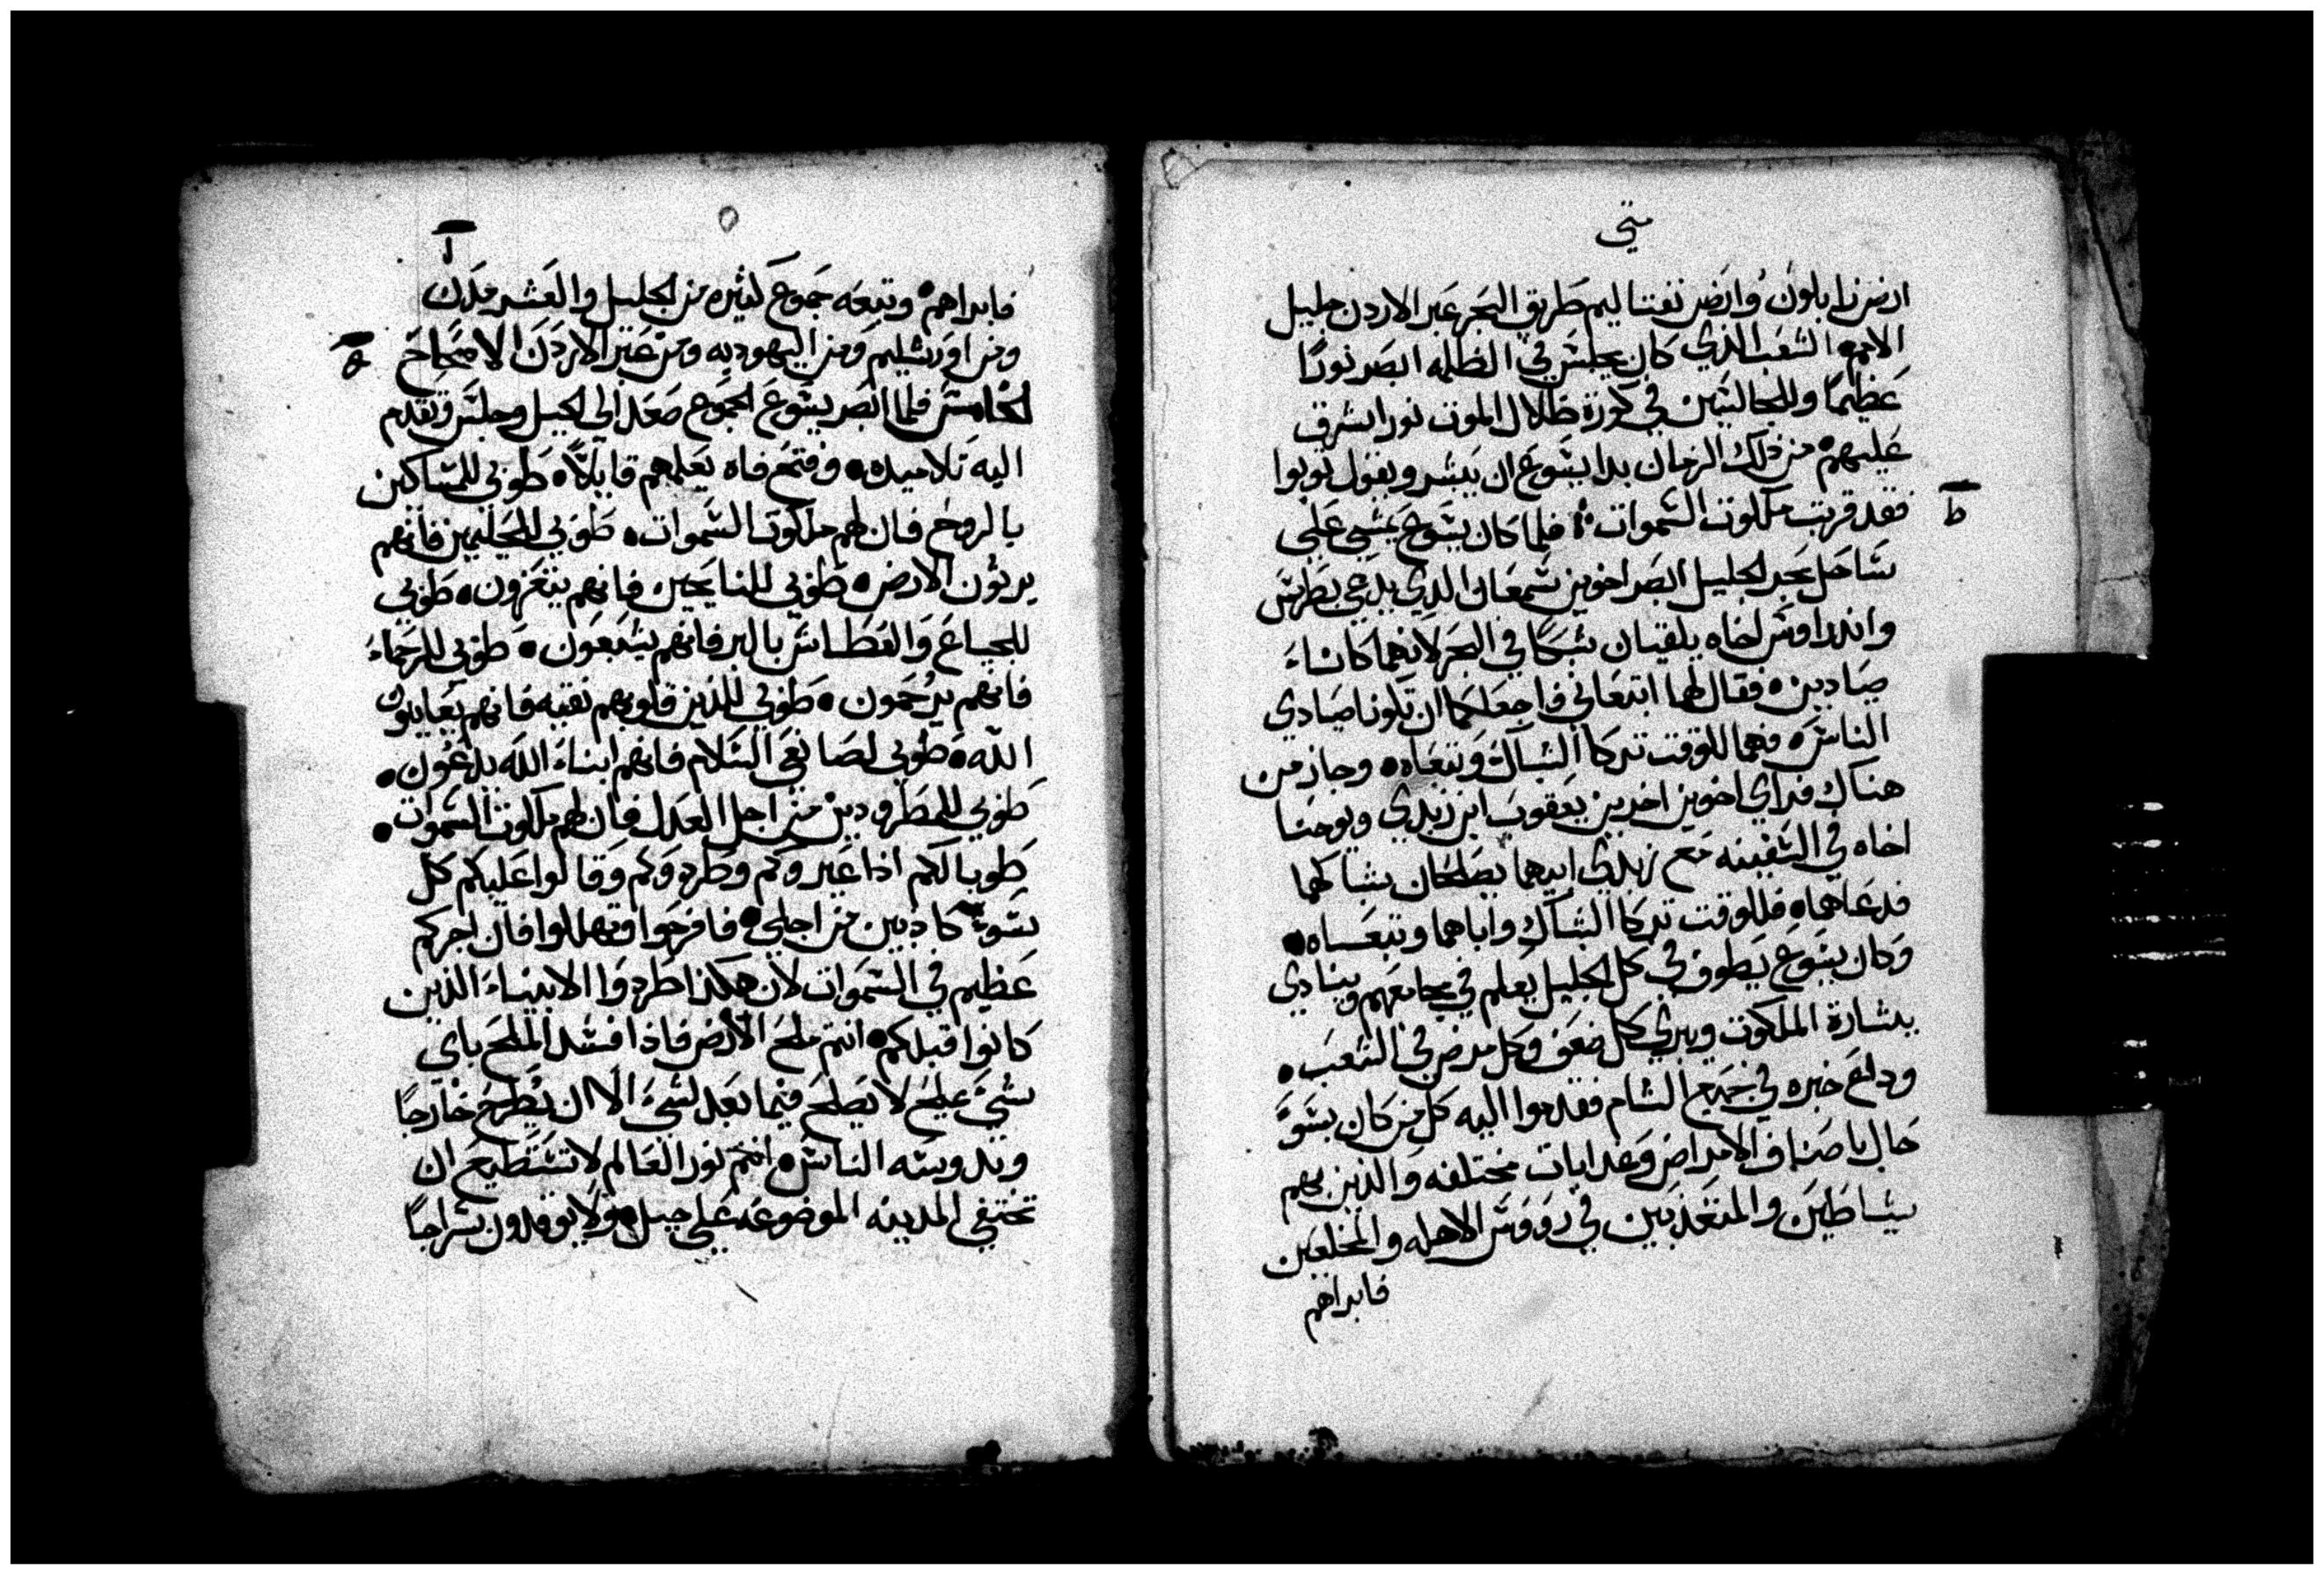 متي
ارض زابلون وارض نفتاليم طريق البحر عبر الاردن جليل
الامم الشعب الذي كان يجلس في الظلمه ابصر نورًا
عظيمًا وللجالسين في كورة ظلال الموت نورا اشرق
عليهم من ذلك الزمان بدا يسوع ان يبشر ويقول توبوا
ط
فقد قربت ملكوت السموات فلما كان يسوع يمشي علي
ساحل بحر الجليل ابصر اخوين سمعان الذي يدعي بطرس
واندراوس اخاه يلقيان شبكا في البحر لانهما كانا
صيادين فقال لهما اتبعاني فاجعلكما ان تكونا صيادي
الناس فهما للوقت تركا الشباك وتبعاه وجاز من
هناك فراي اخوين اخرين يعقوب ابن زبدي ويوحنا
اخاه في السفينه مع زبدي ابيهما يصلحان شباكهما
فدعاهما فللوقت تركا الشباك واباهما وتبعاه
وكان يسوع يطوف في كل الجليل يعلم في مجامعهم وينادي
ببشارة الملكوت ويبري كل ضعف وكل مرض في الشعب
وذاع خبره في جميع الشام فقدموا اليه كل من كان بسوّ
حال باصناف الامراض وعدابات مختلفه والذين بهم
شياطين والمتعذبين في رووس الاهله والمخلعين
فابراهم
٥
ا
فابراهم وتبعه جموع كثيره من الجليل والعشر مدن
ومن اورشليم ومن اليهوديه ومن عبر الاردن الاصحاح
ه
الخامس فلما ابصر يسوع الجموع صعد الي الجبل وجلس وتقدم
اليه تلاميده وفتح فاه يعلمهم قايلًا طوبي للمساكين
بالروح فان لهم ملكوت السموات طوبي للحليمين فانهم
يرثون الارض طوبي للنايحين فانهم يتعزون طوبي
للجياع والعطاش بالبر فانهم يشبعون طوبي للرحماء
فانهم يرحمون طوبي للذين قلوبهم نقيه فانهم يعاينون
الله طوبي لصانعي السلام فانهم ابناء الله يدعون
طوبي للمطرودين من اجل العدل فان لهم ملكوت السموات
طوبا لكم اذا عيروكم وطردوكم وقالوا عليكم كل
سوء كاذبين من اجلي فافرحوا وتهللوا فان اجركم
عظيم في السموات لان هكذا طردوا الانبياء الذين
كانوا قبلكم انتم ملح الارض فاذا فسد الملح باي
شيء يملح لا يصلح فيما بعد لشيء الا ان يطرح خارجًا
وتدوسه الناس انتم نور العالم لا تستطيع ان
تختفي المدينه الموضوعه علي جبل ولا يوقدون سراجًا